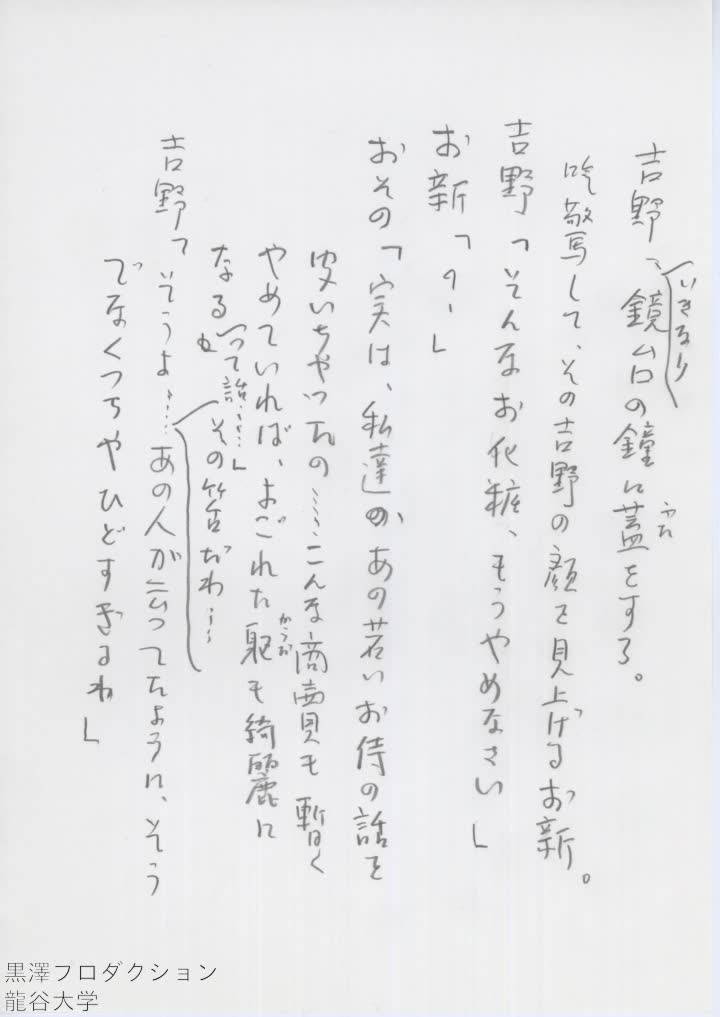 吉野、いきなり鏡台の鐘に蓋をする。
ふた
吃驚して、その吉野の顔を見上げるお新。
吉野「そんなお化粧、もうやめなさい」
お新「?ー」
おその「実は、私達があの若いお侍の話を
聞いちゃったの……こんな商売も暫く
やめていれば、よごれた躯も綺麗に
からだ
なるって話……」
その筈だわ……
吉野「そうよ……あの人が云ってたように、そう
でなくっちゃひどすぎるわ」
黒澤プロダクション
龍谷大学